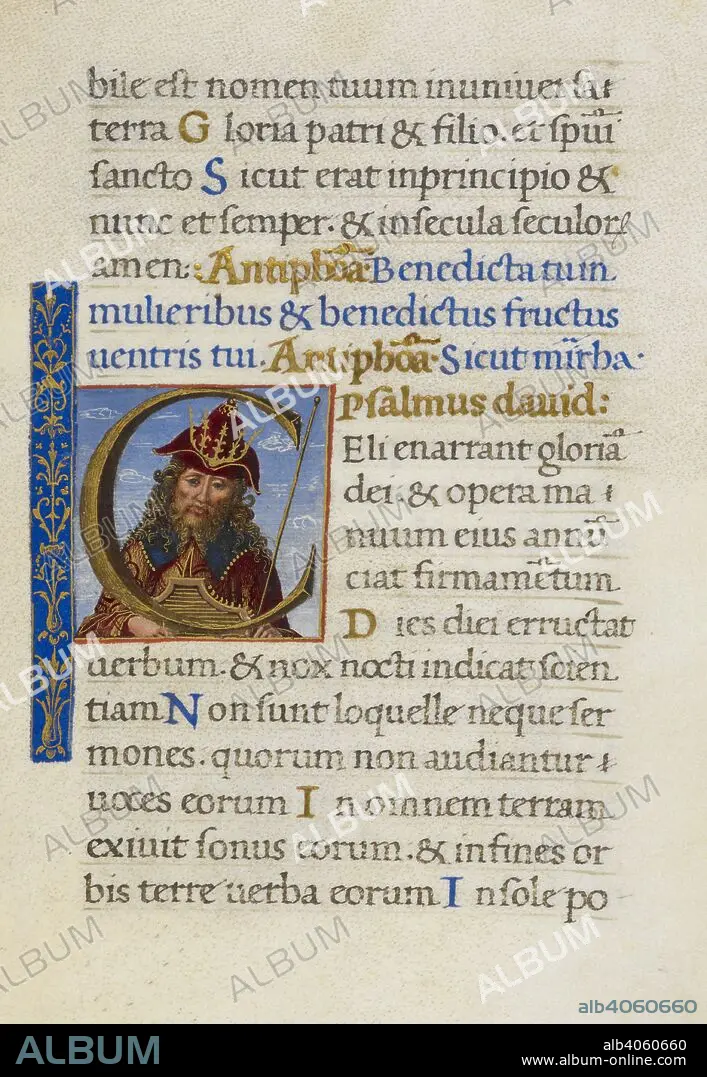 bile est nomen tuum in uniuersa
terra Gloria patri & filio. et spūi
sancto Sicut erat inprincipio &
nunc et semper. & insecula seculorꝝ
amen: Antiphōa Benedicta tu in
mulieribus & benedictus fructus
uentris tui. Antiphōa Sicut mirrha.
Psalmus dauid:
CEli enarrant gloriā
dei. & opera ma
nuum eius annū
ciat firmamētum
Dies diei erructat
uerbum. & nox nocti indicat scien
tiam Non sunt loquelle neque ser
mones. quorum non audiantur
uoces eorum In omnem terram
exiuit sonus eorum. & infines or
bis terre uerba eorum In sole po
ALBUM
alb4060660
ALBUM
alb4060660
www.album-online.com